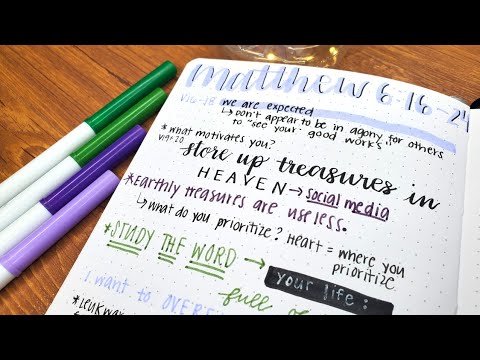 matthew 6:16-24
v16-18 we are expected
↳ Don't appear to be in agony for others
to "see your good works"
*what motivates you?
v19+20
store up treasures in
HEAVEN → social media
*Earthly treasures are useless.
↳ what do you prioritize? Heart = where you
prioritize
*STUDY THE WORD →
your life:
I want to
full of